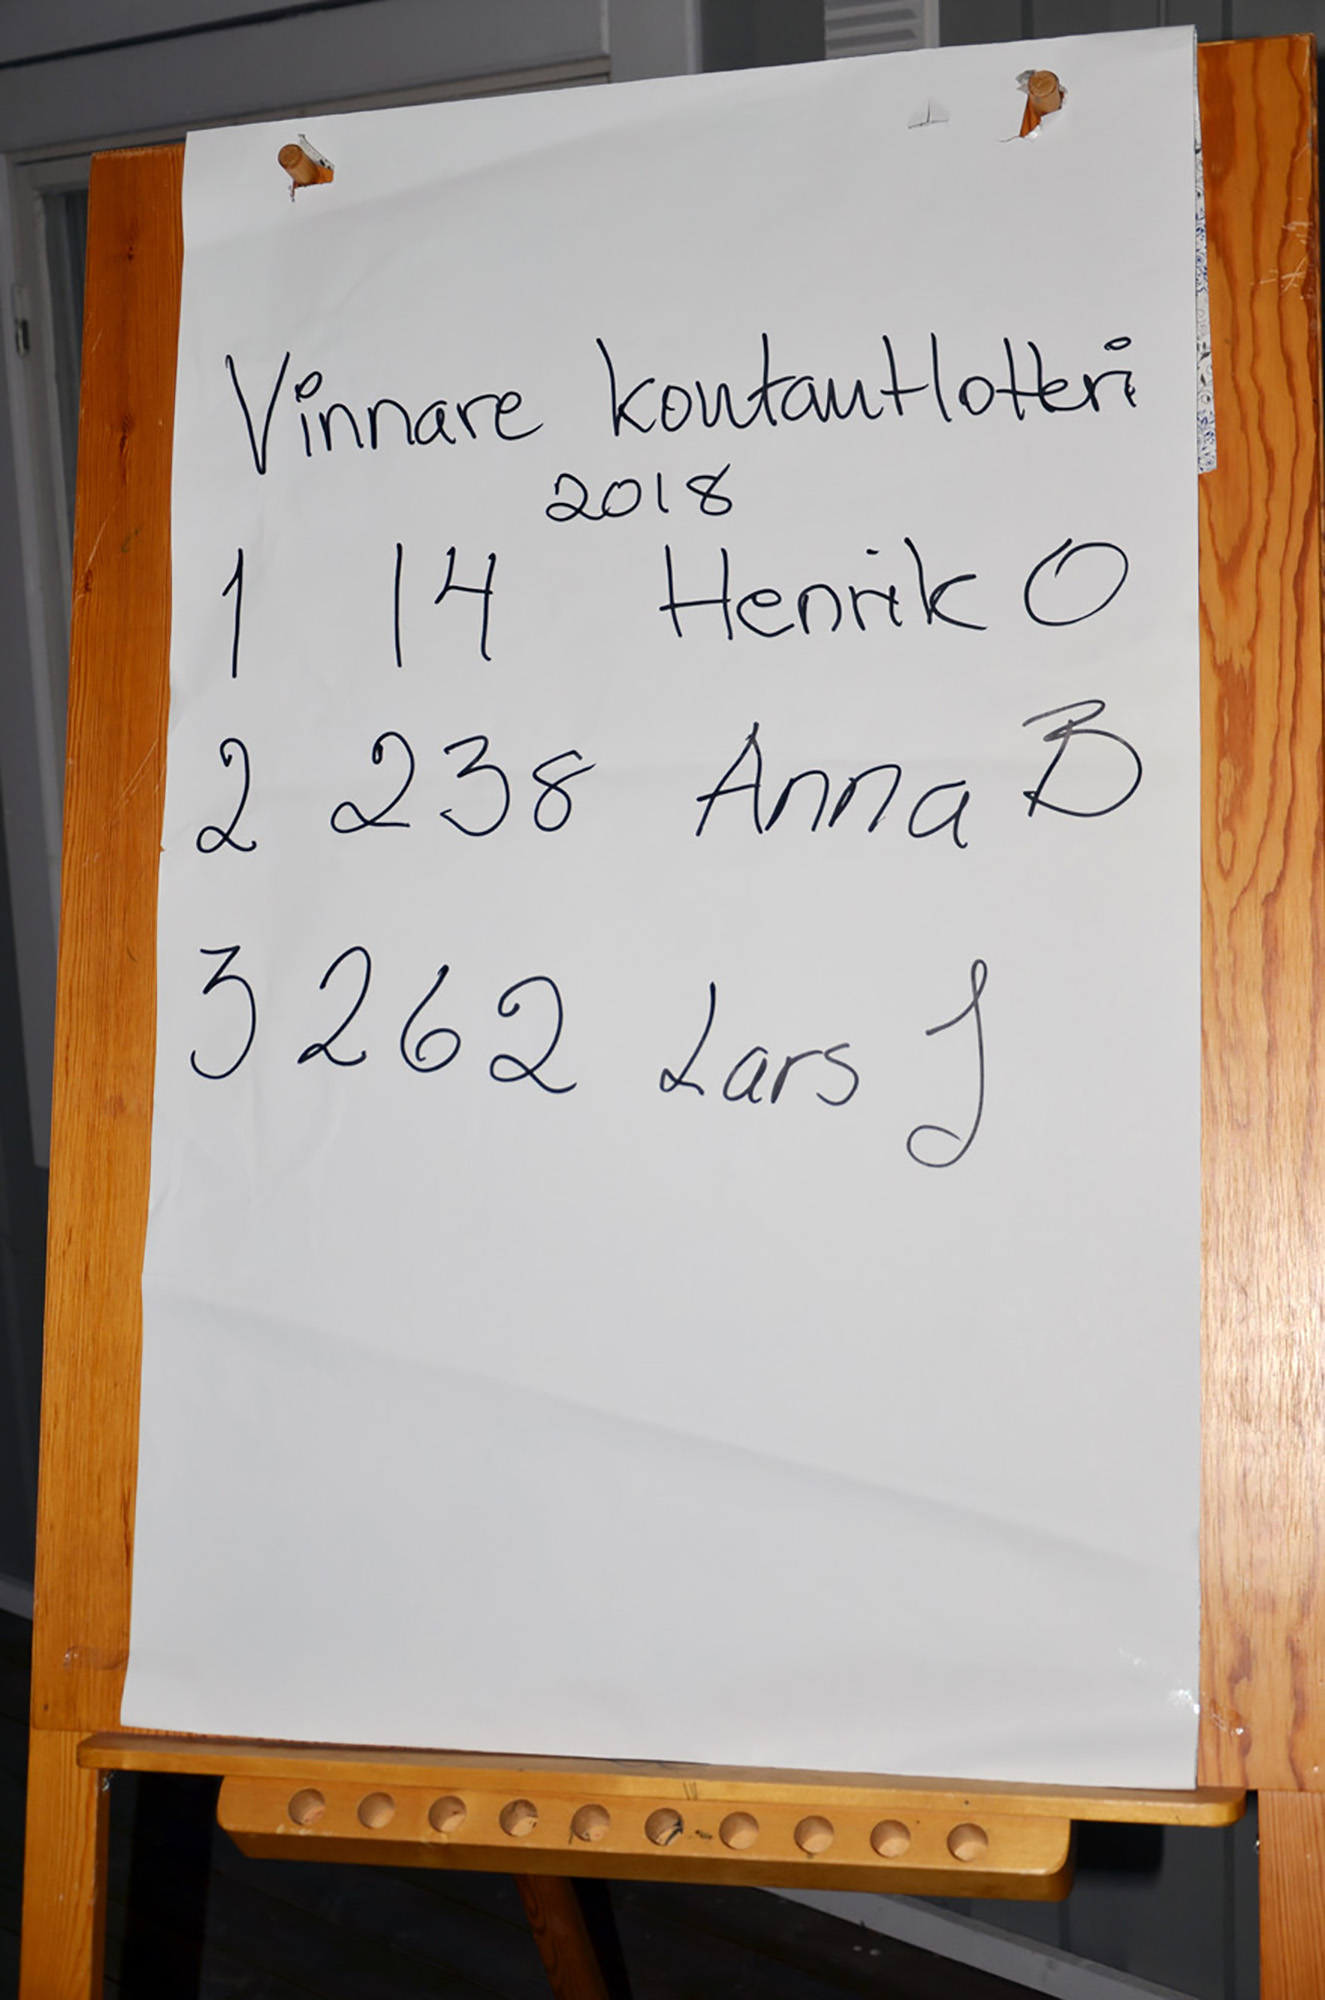 Vinnare kontantlotteri
2018
1 14 Henrik O
2 238 Anna B
3 262 Lars J